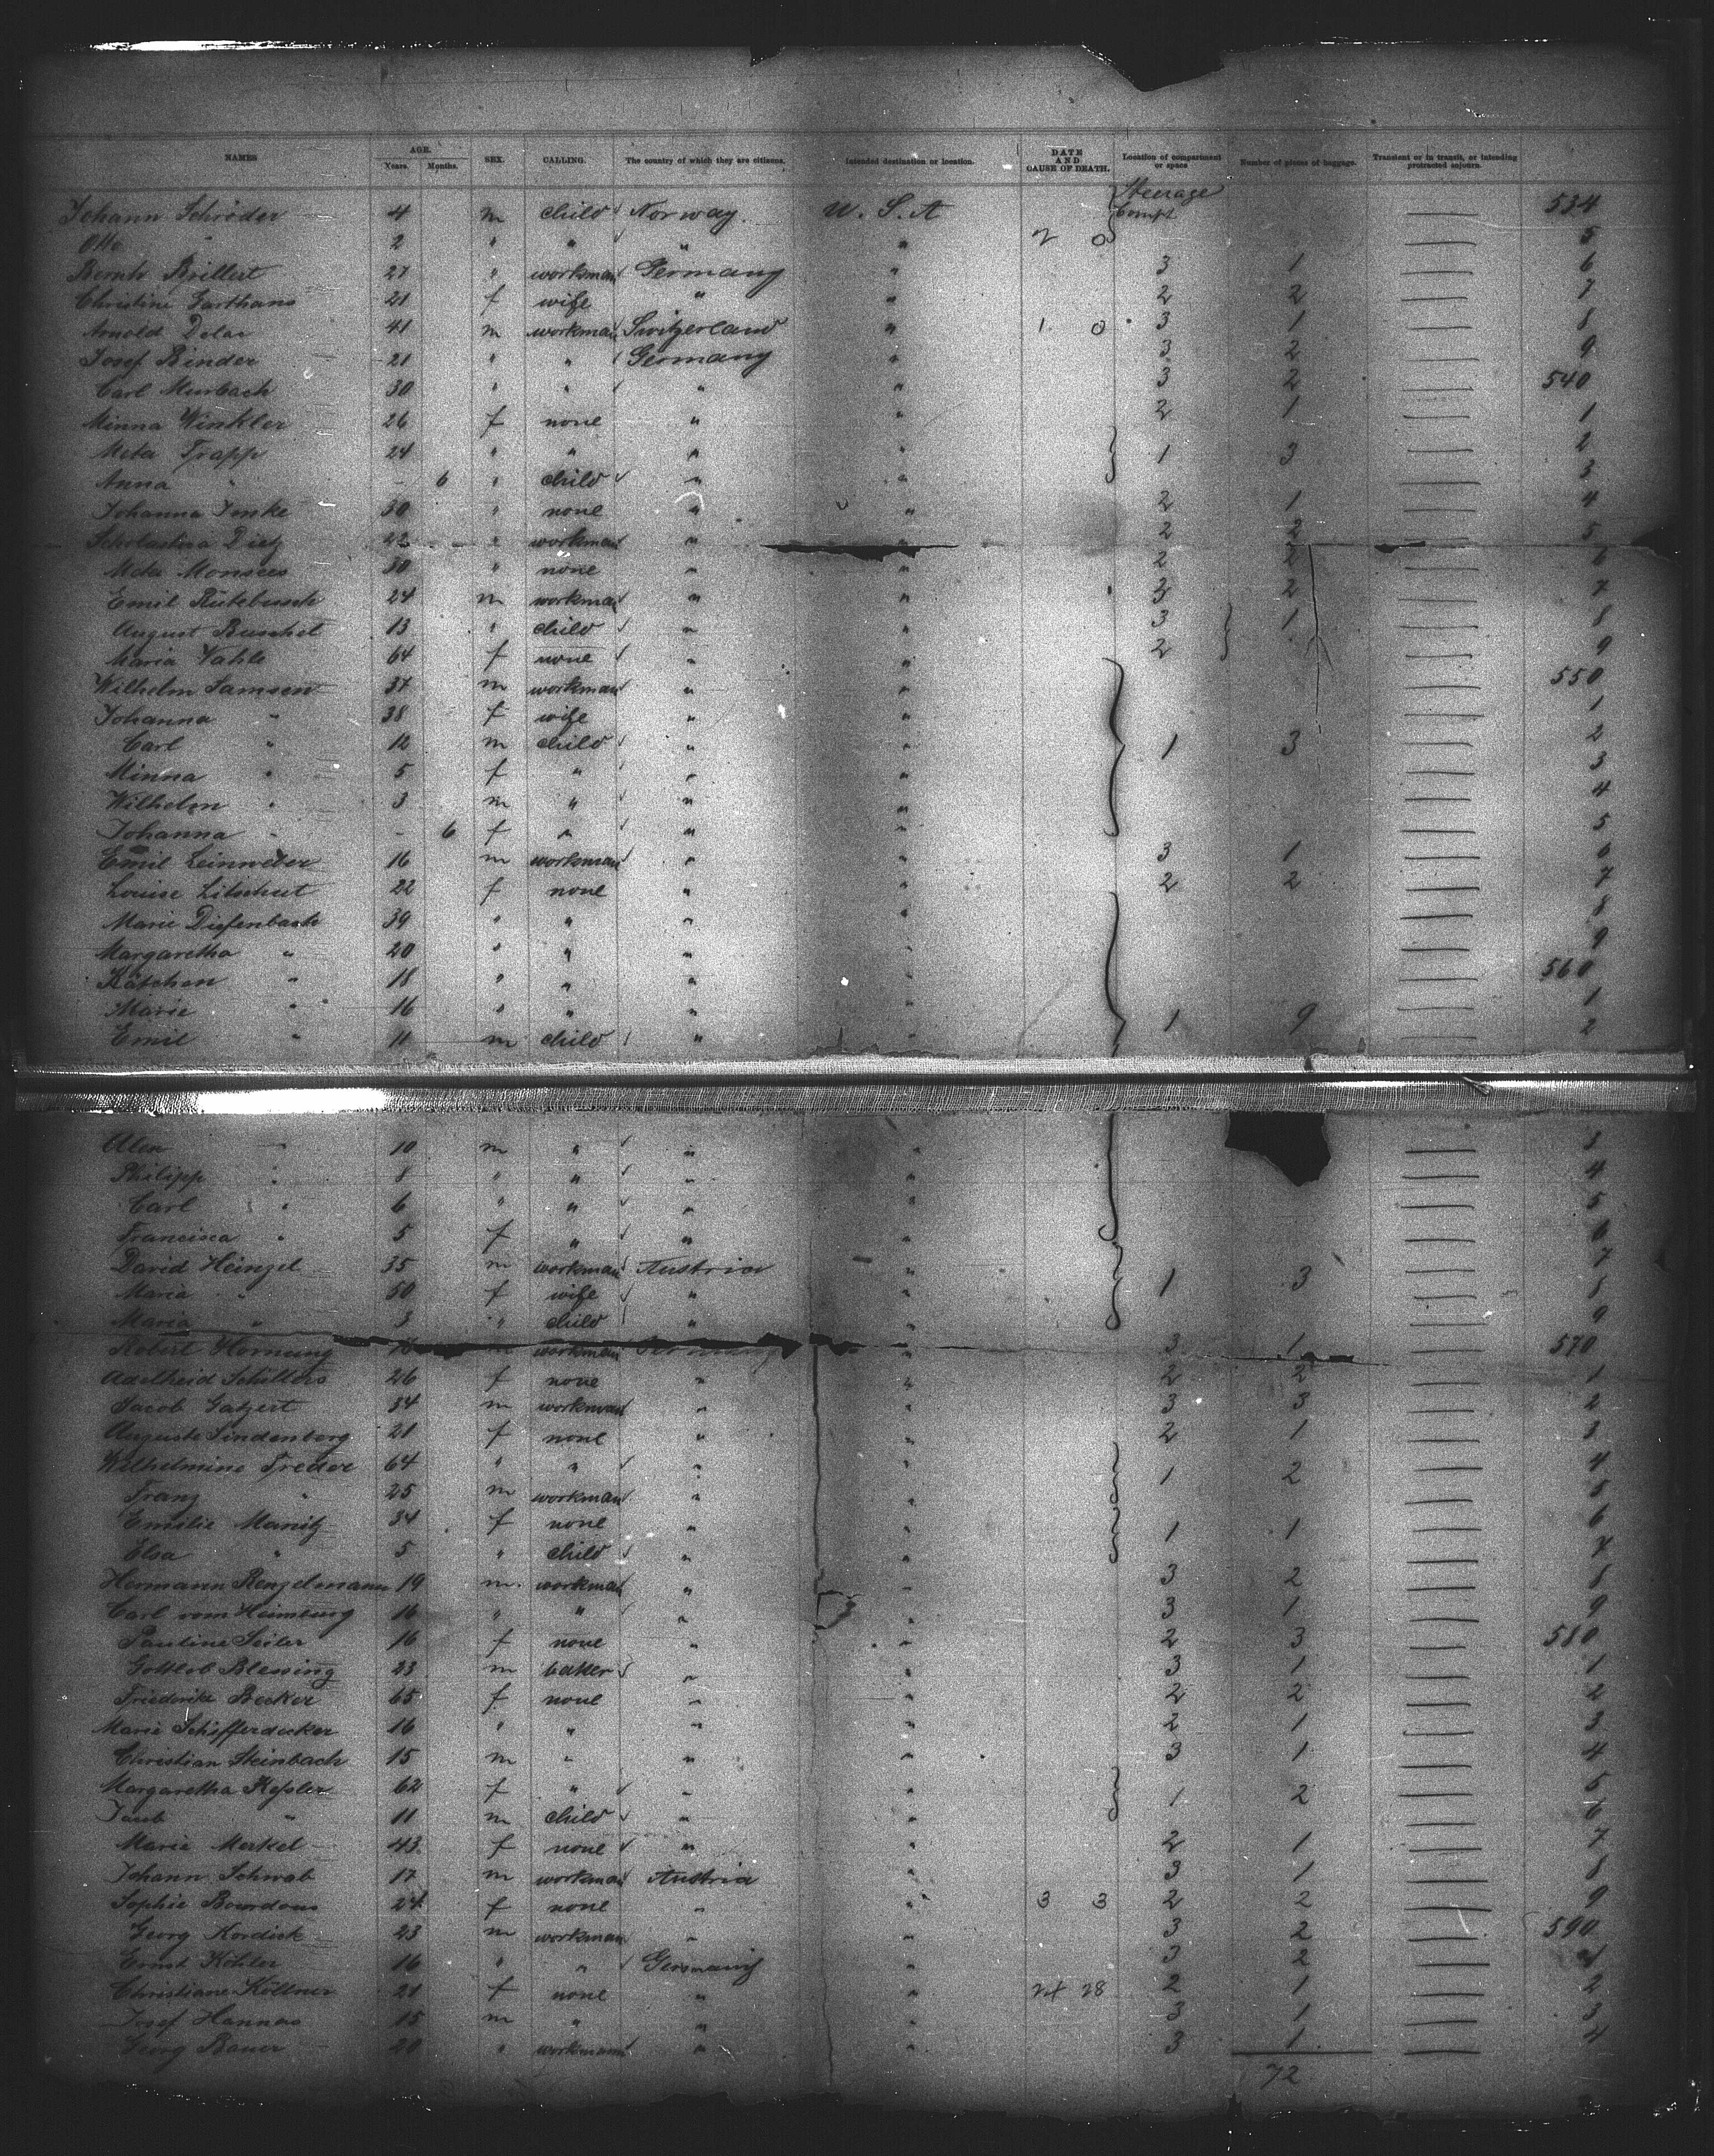 NAMES AGE. Years. Months. SEX. CALLING. The country of which they are citizens. Intended destination or location. DATE AND CAUSE OF DEATH. Location of compartment or space Number of pieces of baggage. Transient or in transit, or intending protracted sojourn.
Steerage
Johann Schröder 4 m child Norway. U. S. A Compt — 534
Otto " 2 " " " " 2 0 — 5
Bernh 27 " workman Germany " 3 1 — 6
Christine 21 f wife " " 2 2 — 7
Arnold 41 m workman Switzerland " 1 0 3 1 — 8
Josef Binder 21 " " Germany " 3 2 — 9
Carl Murbach 30 " " " " 3 2 — 540
Minna Winkler 26 f none " " 2 1 — 1
Meta Trapp 24 " " " " 1 3 — 2
Anna " - 6 " child " " — 3
Johanna Imke 30 " none " " 2 1 — 4
Scholastina Dietz 22 " workman " " 2 2 — 5
Meta Monsees 30 " none " " 2 2 — 6
Emil Rütebusch 24 m workman " " 3 2 — 7
August 13 " child " " 3 1 — 8
Maria Vahle 64 f none " " 2 — 9
Wilhelm Samsen 37 m workman " " — 550
Johanna " 38 f wife " " — 1
Carl " 12 m child " " 1 3 — 2
Minna " 5 f " " " — 3
Wilhelm " 3 m " " " — 4
Johanna " - 6 f " " " — 5
Emil Leinweber 16 m workman " " 3 1 — 6
Louise 22 f none " " 2 2 — 7
Marie Diefenbach 39 " " " " — 8
Margaretha " 20 " " " — 9
Kätchen " 18 " " " — 560
Marie " 16 " " " " — 1
Emil " 11 m child " " 1 9 — 2
" 10 m " " " — 3
Philipp " 8 " " " " — 4
Carl " 6 " " " " — 5
Francisca " 5 f " " " — 6
David Heinzel 35 m workman Austria " — 7
Maria " 50 f wife " " 1 3 — 8
Maria " 3 " child " " — 9
Robert Hornung m workman Germany " 3 1 — 570
Adelheid 26 f none " " 2 2 — 1
Jacob Gatzert 34 m workman " " 3 3 — 2
Auguste Lindenberg 21 f none " " 2 1 — 3
Wilhelmine 64 " " " " 1 2 — 4
Franz " 25 m workman " " — 5
Emilie Manitz 34 f none " " 1 1 — 6
Elsa " 5 " child " " — 7
Hermann Renzelmann 19 m. workman " " 3 2 — 8
Carl vom Heimburg 16 " " " " 3 1 — 9
Pauline Seiler 16 f none " " 2 3 — 580
Gottlob Blessing 23 m baker " " 3 1 — 1
Friederike Becker 65 f none " " 2 2 — 2
Marie Schifferdecker 16 " " " " 2 1 — 3
Christian Steinbach 15 m " " " 3 1 — 4
Margaretha Kessler 62 f " " " 1 2 — 5
" 11 m child " " — 6
Marie Merkel 43 f none " " 2 1 — 7
Johann Schwab 17 m workman Austria " 3 1 — 8
Sophie 24 f none " " 3 3 2 2 — 9
Georg Kordick 23 m workman " " 3 2 — 590
Ernst Köhler 16 " " Germany " 3 2 — 1
Christiane Köllner 21 f none " " 24 28 2 1 — 2
Josef Hannes 15 m " " " 3 1 — 3
Georg Bauer 20 " workman " " 3 1 — 4
72